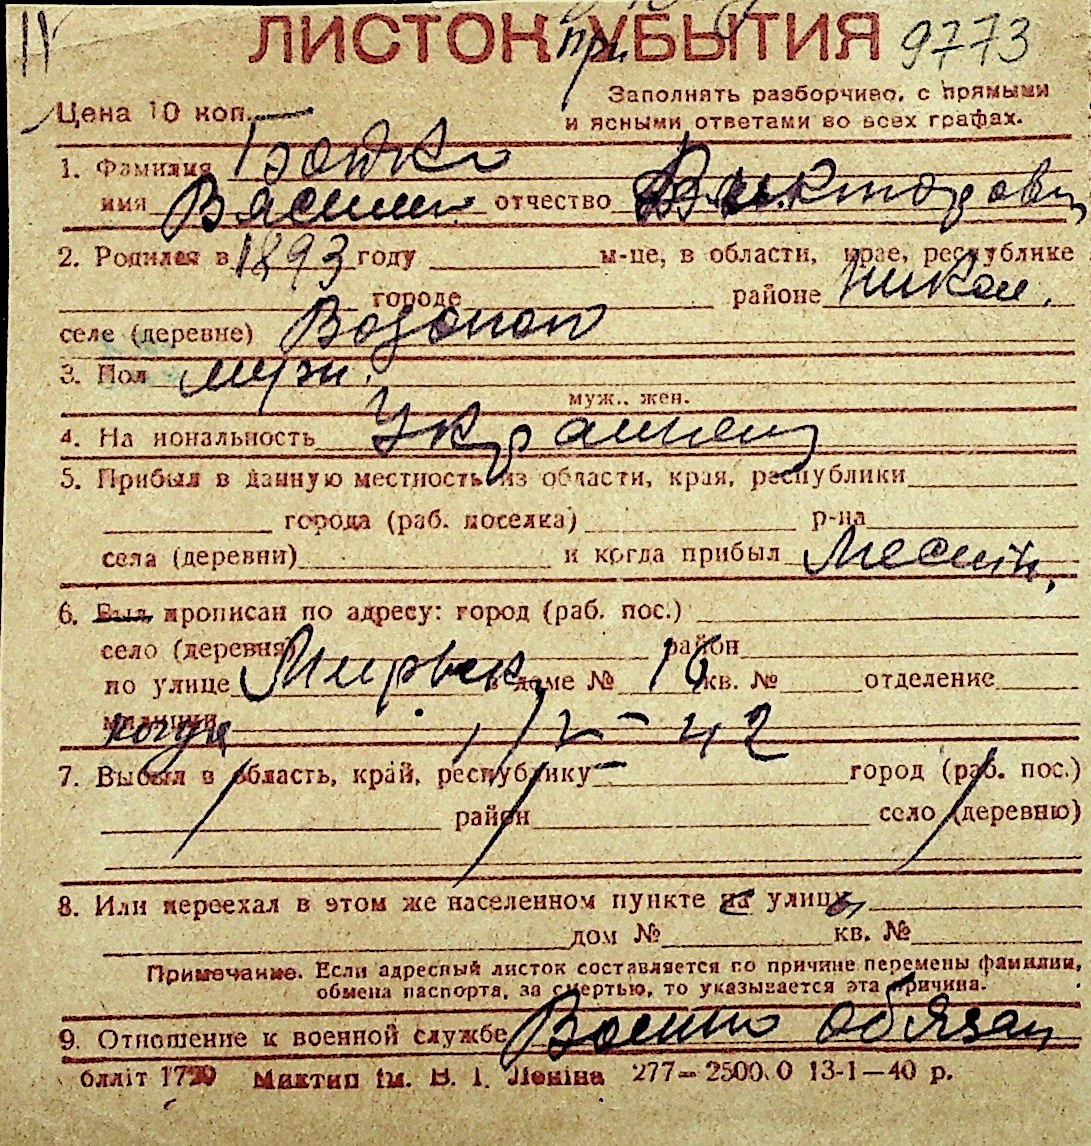 ЛИСТОК УБЫТИЯ 9773
при
Цена 10 коп.
Заполнять разборчиво, с прямыми
и ясными ответами во всех графах.
1. Фамилия Божко
имя Василий отчество Викторович
2. Родился в 1893 году м-це, в области, крае, республике
городе районе Никол.
селе (деревне) Водопой
3. Пол муж.
муж., жен.
4. Национальность Украинец
5. Прибыл в данную местность из области, края, республики
города (раб. поселка) р-на
села (деревни) и когда прибыл Местн.
6. Был прописан по адресу: город (раб. пос.)
село (деревня) район
по улице в доме № 16 кв. № отделение
милиции когда 42
7. Выбыл в область, край, республику город (раб. пос.)
район село (деревню)
8. Или переехал в этом же населенном пункте с улицы
дом № кв. №
Примечание. Если адресный листок составляется по причине перемены фамилии,
обмена паспорта, за смертью, то указывается эта причина.
9. Отношение к военной службе Военно обязан
блліт 1720 Миктип ім. В. І. Леніна 277—2500.0 13-1—40 р.